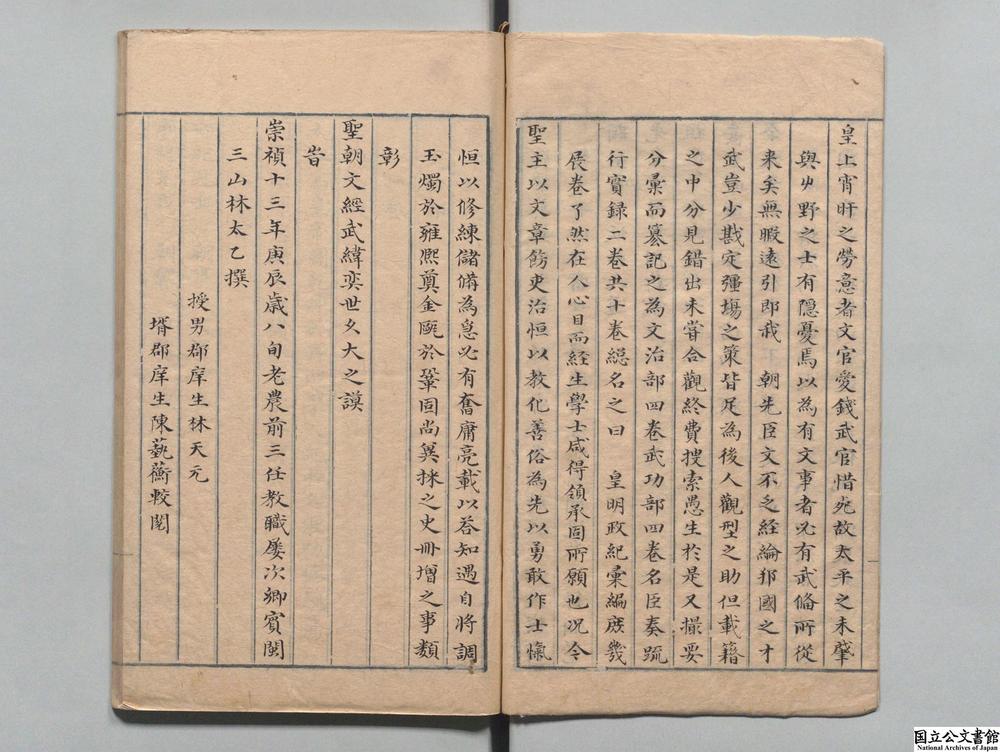 皇上宵旰之勞意者文官愛錢武官惜死故太平之未肇
與山野之士有隱憂焉以為有文事者必有武備所從
来矣無暇遠引即我 朝先臣文不乏経綸邦國之才
武豈少戡定彊場之策皆足為後人觀型之助但載籍
之中分見錯出未甞合觀終費搜索愚生於是又撮要
分彙而纂記之為文治部四卷武功部四卷名臣奏疏
行實録二卷共十卷縂名之曰 皇明政紀彙編庶幾
展卷了然在人心目而経生學士咸得領承固所願也况今
聖主以文章飭吏治恒以教化善俗為先以勇敢作士愾
恒以修練儲備為急必有奮庸亮載以答知遇自將調
玉燭於雍熈奠金甌於鞏固尚兾採之史冊增之事類
彰
聖朝文經武緯奕世久大之謨
旹
崇禎十三年庚辰歳八旬老農前三任教職屡次鄉賓閩
三山林太乙撰
授男郡庠生林天元
壻郡庠生陳藝蘅較閱
国立公文書館
National Archives of Japan